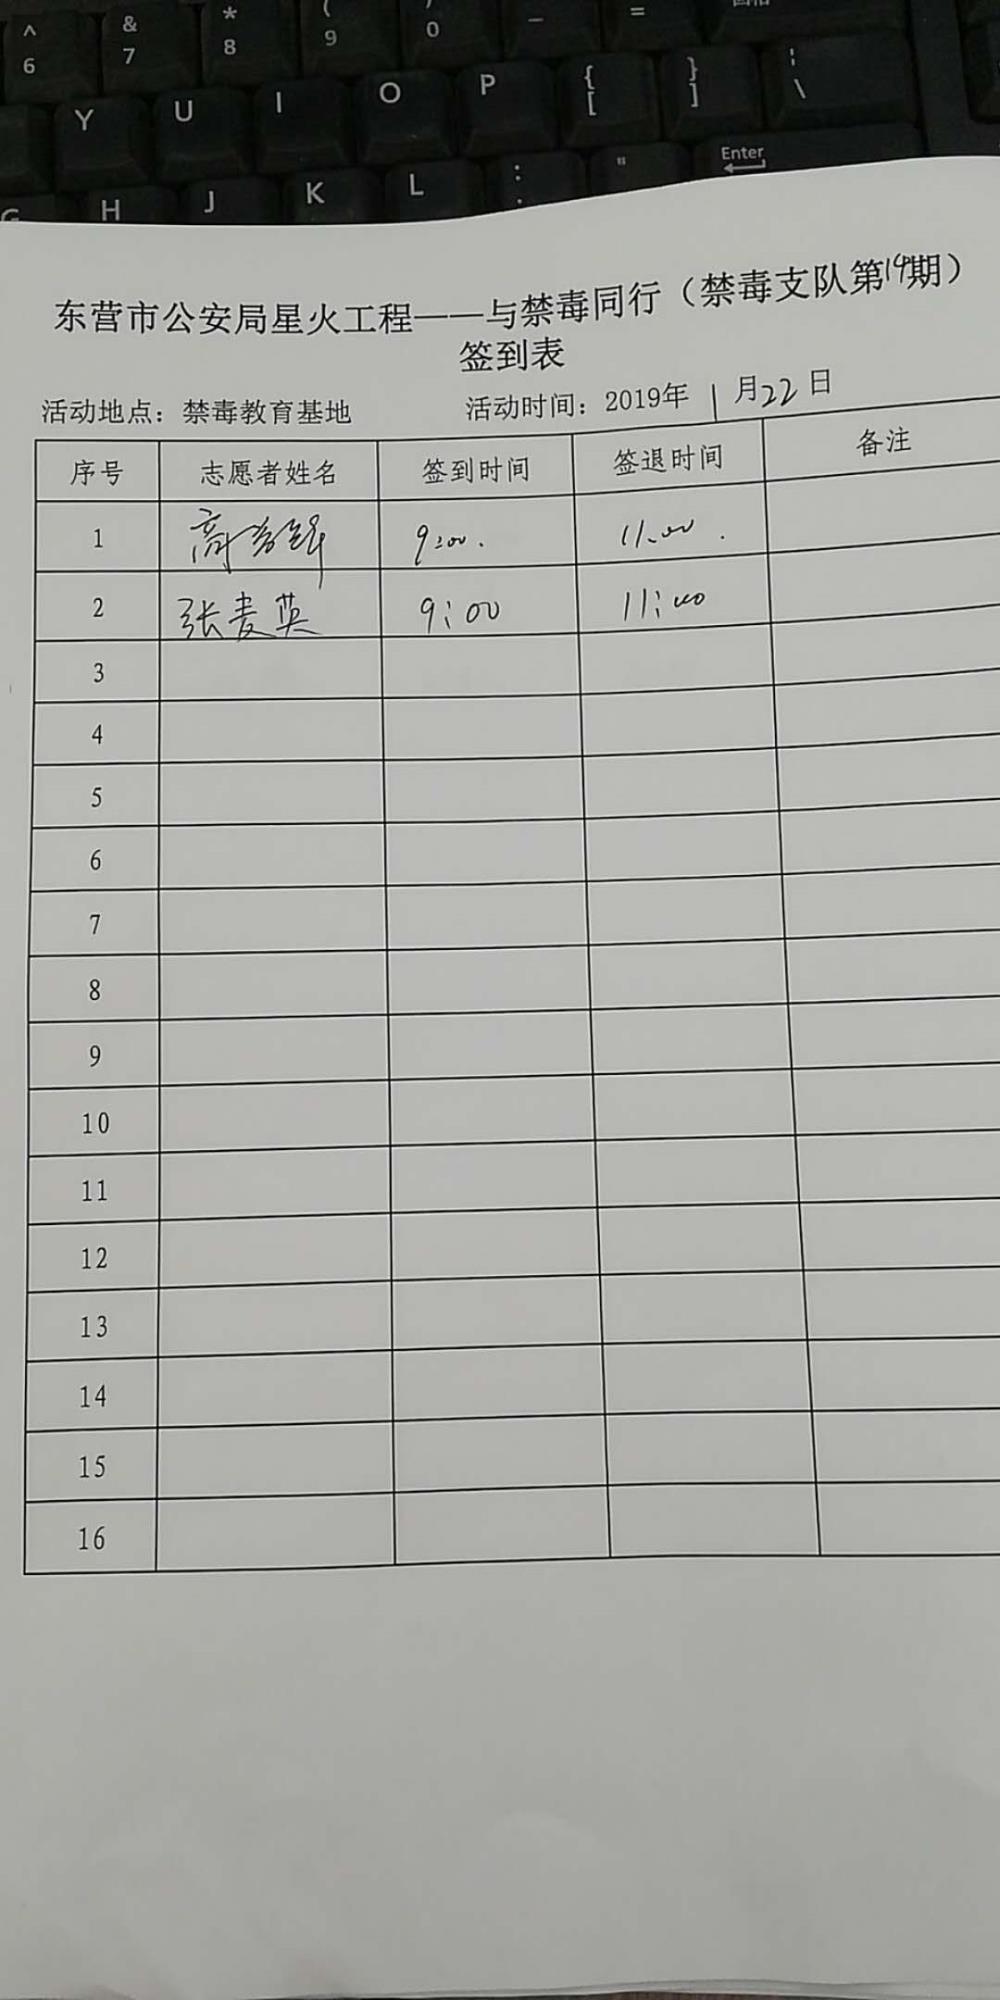 ^ & * ( ) _ +
6 7 8 9 0 - =
Y U I O P { [ } ] ¦ \
G H J K L : " Enter
东营市公安局星火工程——与禁毒同行（禁毒支队第19期）
签到表
活动地点：禁毒教育基地 活动时间：2019年 1 月22日
序号 志愿者姓名 签到时间 签退时间 备注
1 高 9:00. 11:00.
2 张麦英 9:00 11:00
3
4
5
6
7
8
9
10
11
12
13
14
15
16